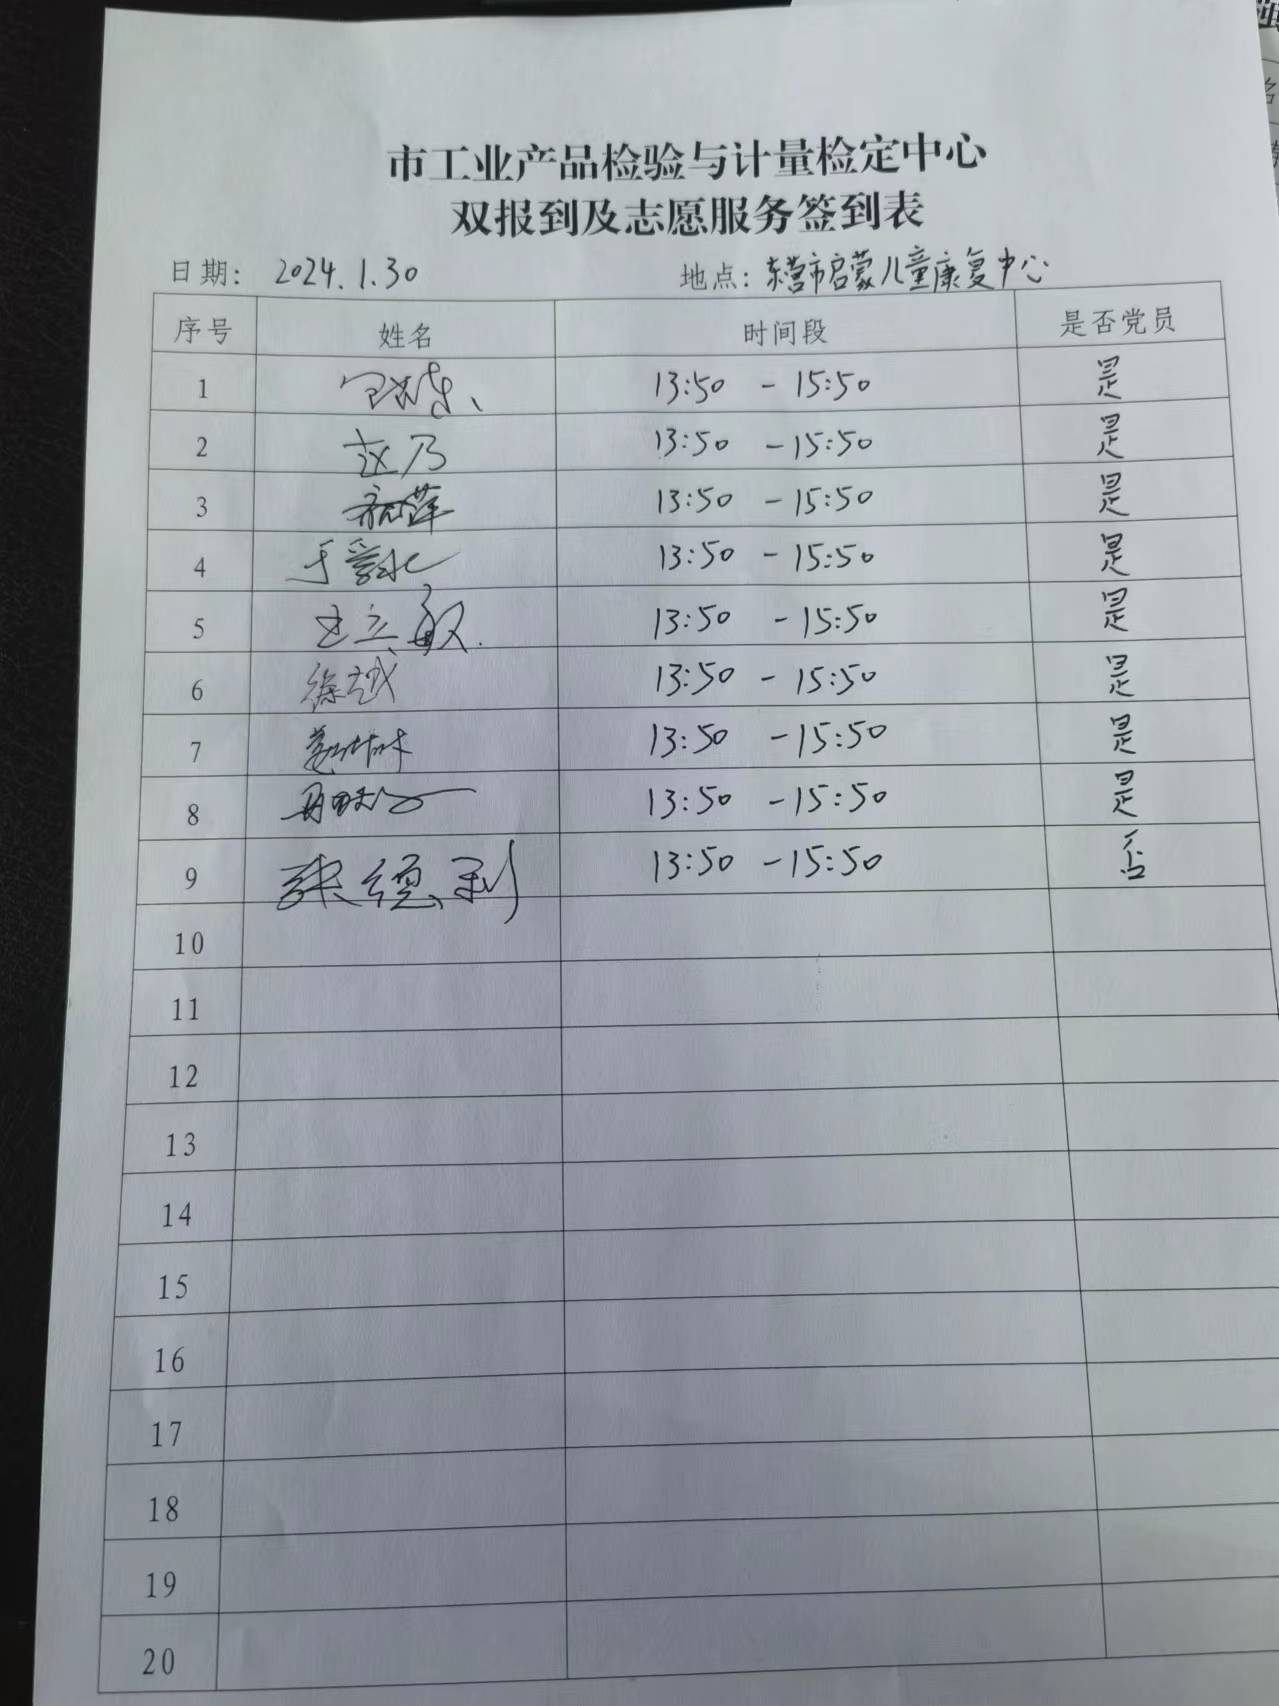 市工业产品检验与计量检定中心
双报到及志愿服务签到表
日期: 2024.1.30 地点: 东营市启蒙儿童康复中心
序号 姓名 时间段 是否党员
1 13:50 - 15:50 是
2 赵乃 13:50 - 15:50 是
3 13:50 - 15:50 是
4 13:50 - 15:50 是
5 13:50 - 15:50 是
6 13:50 - 15:50 是
7 13:50 - 15:50 是
8 13:50 - 15:50 是
9 张德利 13:50 - 15:50 否
10
11
12
13
14
15
16
17
18
19
20